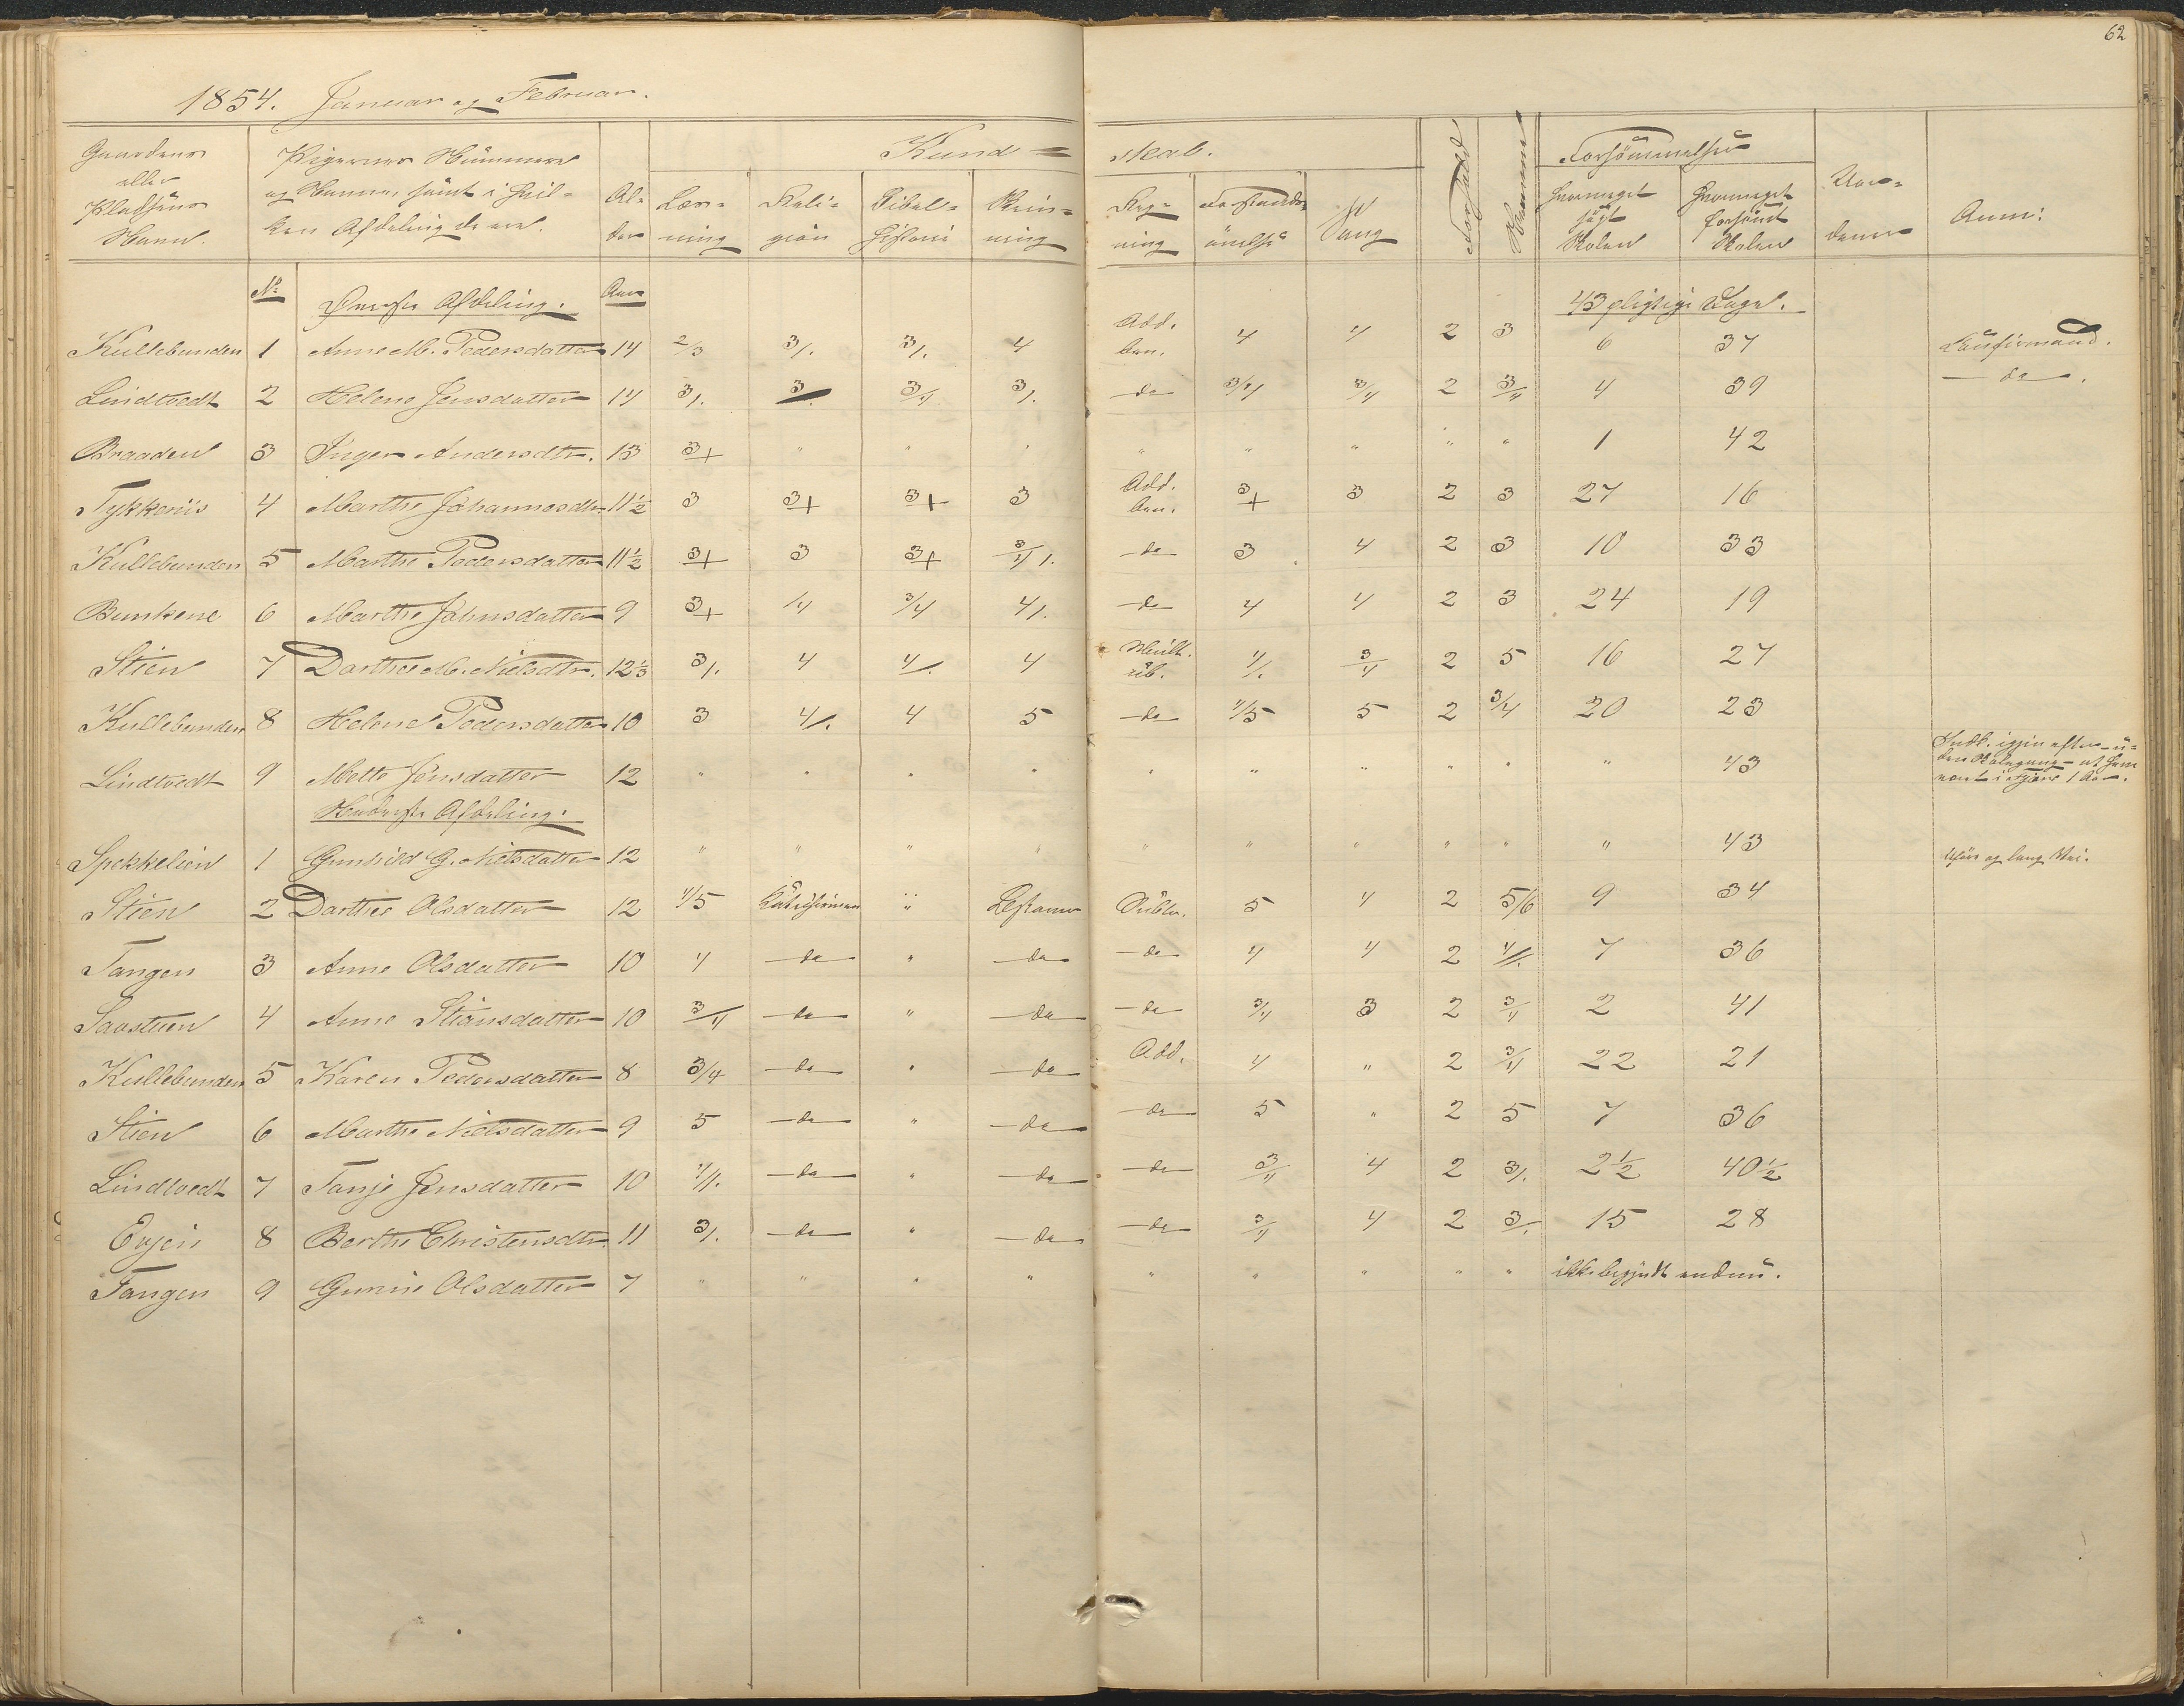 62
1854. Januar og Februar.
Gaardens eller Pladsens Navn. | Pigernes Nummere og Navne, samt i hvilken Afdeling de ere. | Alder | Kundskab. | Forhold | Nemme | Forsømmelser | Anm:
Læsning | Religion | Bibelhistorie | Skrivning | Regning | Forstandsøvelse | Sang | hvormeget søgt Skolen | hvormeget forsømt Skolen
No | Øverste Afdeling. | Aar | 43 pligtige Dage.
Kullebunden 1 Anne M. Pedersdatter 14 2/3 3/. 3/. 4 Add. ben. 4 4 2 3 6 37 Confirmand.
Lindtvedt 2 Helene Jensdatter 14 3/. 3/. 3/4 3/. do 3/4 3/4 2 3/4 4 39 do.
Braaden 3 Inger Andersdtr. 13 3+ " " " " " " " " 1 42
Tykkeriis 4 Marthe Johannesdtr 11½ 3 3+ 3+ 3 Add. ben. 3+ 3 2 3 27 16
Kullebunden 5 Marthe Pedersdatter 11½ 3+ 3 3+ 3/4/. do 3 4 2 3 10 33
Bunkene 6 Marthe Johnsdatter 9 3+ /4 3/4 4/. do 4 4 2 3 24 19
Stien 7 Dorthee M. Nielsdtr. 12⅓ 3/. 4 4/. 4 Mult. ub. 4/. 3/4 2 5 16 27
Kullebunden 8 Helene Pedersdatter 10 3 4/. 4 5 do 4/5 5 2 3/4 20 23
Lindtvedt 9 Mette Jensdatter 12 " " " " " " " " " " 43 igjen efter uden Skolegang at have været 1 Aar.
Nederste Afdeling.
Spekkelien 1 Gunhild G. Nielsdatter 12 " " " " " " " " " " 43 og lang Vei.
Stien 2 Dorthee Olsdatter 12 4/5 Katechismen " Bestemmer Subtr. 5 4 2 5/6 9 34
Tangen 3 Anne Olsdatter 10 4 do " do do 4 4 2 4/. 7 36
Saastuen 4 Anne Stiansdatter 10 3/4 do " do do 3/4 3 2 3/4 2 41
Kullebunden 5 Karen Pedersdatter 8 3/4 do " do Add. 4 " 2 3/4 22 21
Stien 6 Marthe Nielsdatter 9 5 do " do do 5 " 2 5 7 36
Lindtvedt 7 Tanje Jensdatter 10 4/. do " do do 3/4 4 2 3/. 2½ 40½
Evjen 8 Berthe Christensdtr. 11 3/. do " do do 3/4 4 2 3/. 15 28
Tangen 9 Gunnie Olsdatter 7 " " " " " " " " " ikke begyndt endnu.